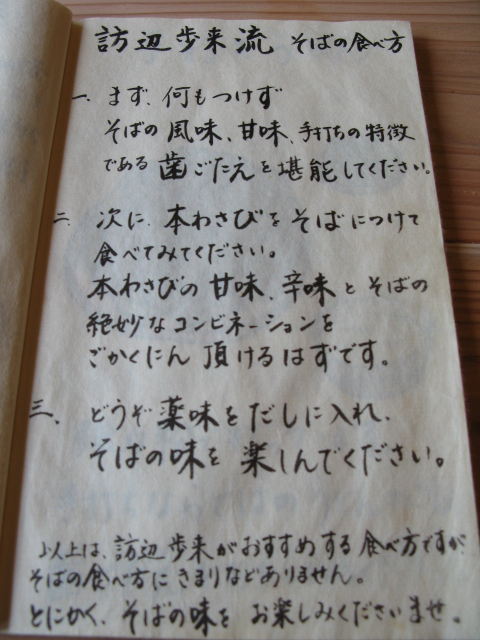 訪辺歩来流 そばの食べ方
一. まず、何もつけず
そばの風味、甘味、手打ちの特徴
である歯ごたえを堪能してください。
二. 次に、本わさびをそばにつけて
食べてみてください。
本わさびの甘味、辛味とそばの
絶妙なコンビネーションを
ごかくにん頂けるはずです。
三. どうぞ薬味をだしに入れ、
そばの味を楽しんでください。
以上は、訪辺歩来がおすすめする食べ方ですが
そばの食べ方にきまりなどありません。
とにかく、そばの味をお楽しみくださいませ。